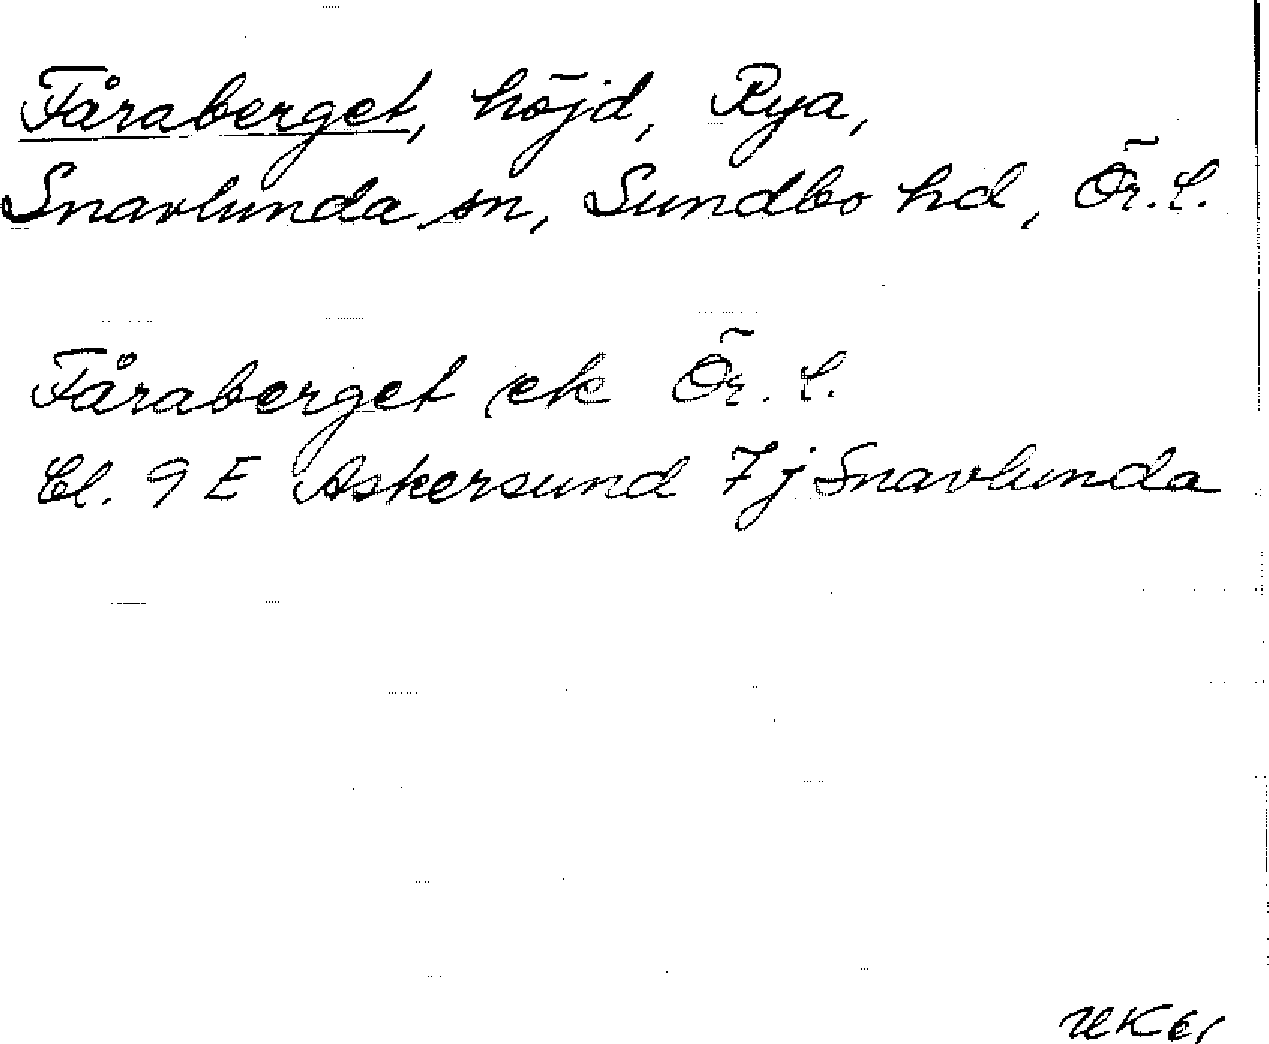 Fåraberget, höjd, Rya,
Snavlunda sn, Sundbo hd, Ör. l.
Fåraberget ek Ör. l.
Bl. 9 E Askersund 7 j Snavlunda